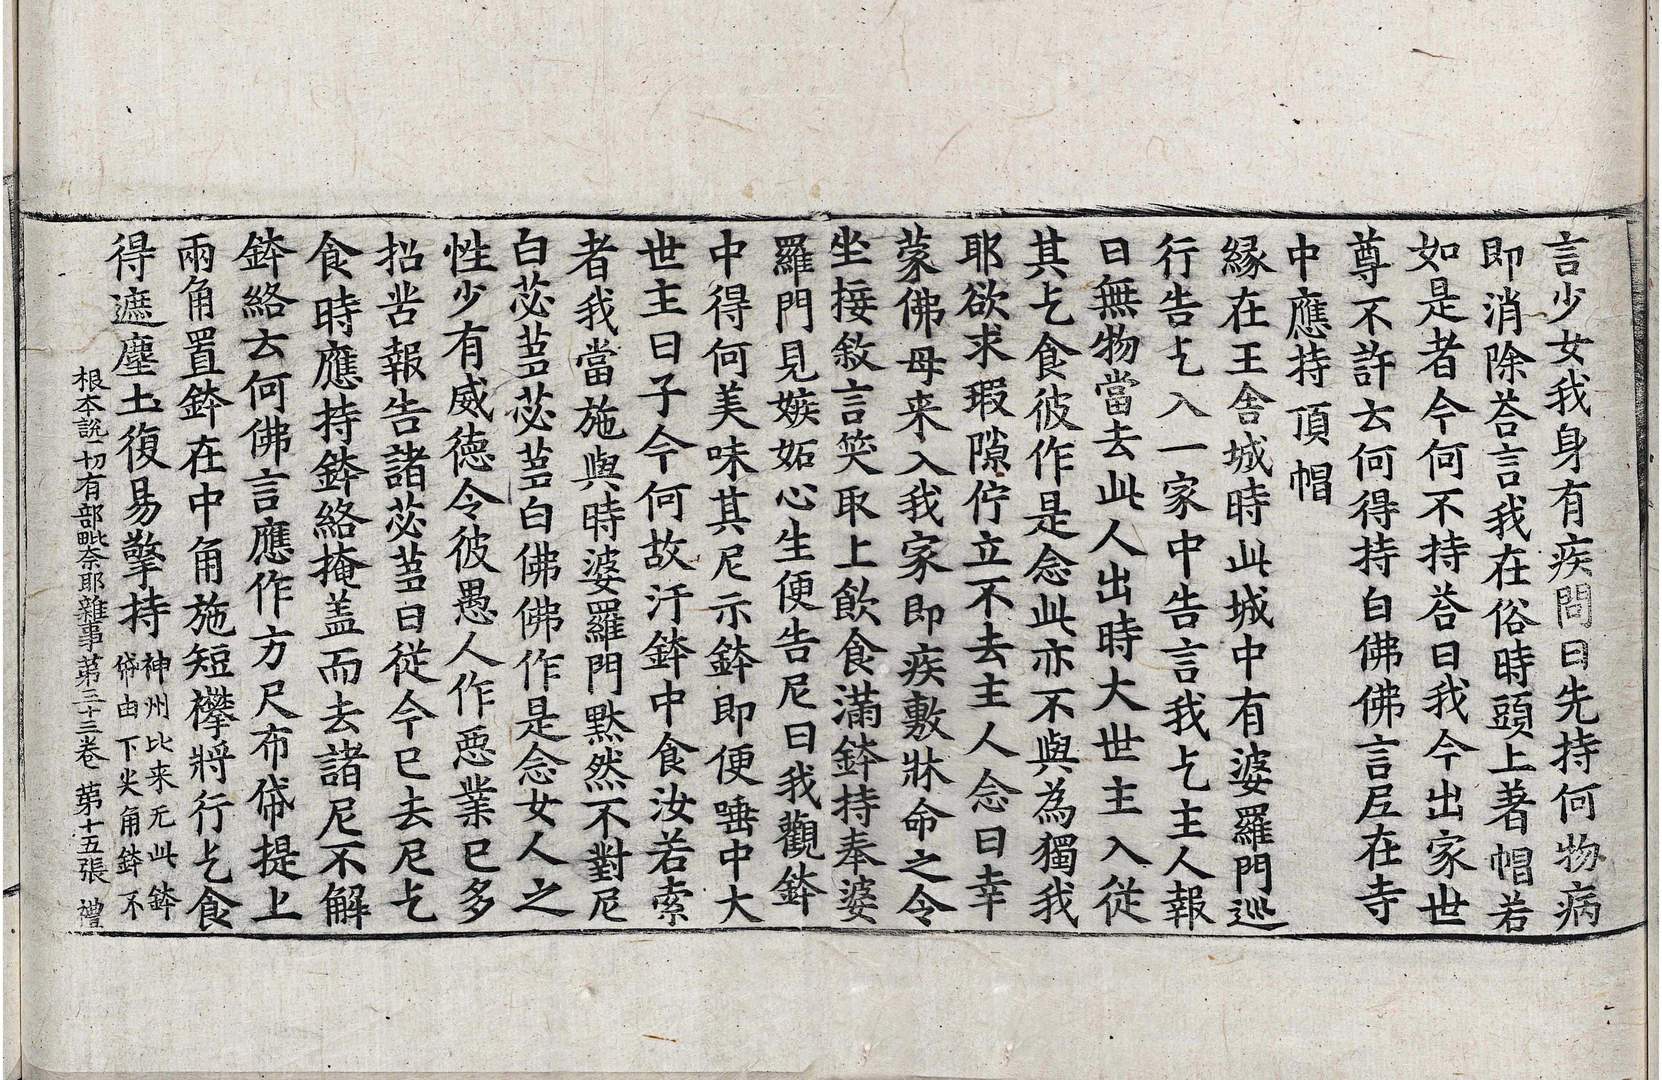 言少女我身有疾問曰先持何物病
即消除荅言我在俗時頭上著帽若
如是者今何不持荅曰我今出家世
尊不許去何得持白佛佛言尼在寺
中應持頂帽
緣在王舍城時此城中有婆羅門巡
行告乞入一家中告言我乞主人報
曰無物當去此人出時大世主入從
其乞食彼作是念此亦不與為獨我
耶欲求瑕隙佇立不去主人念曰幸
蒙佛母来入我家即疾敷牀命之令
坐接敘言笑取上飲食滿鉢持奉婆
羅門見嫉妬心生便告尼曰我觀鉢
中得何美味其尼示鉢即便唾中大
世主曰子今何故汙鉢中食汝若索
者我當施與時婆羅門默然不對尼
白苾芻苾芻白佛佛作是念女人之
性少有威德令彼愚人作惡業已多
招苦報告諸苾芻曰從今已去尼乞
食時應持鉢絡掩盖而去諸尼不解
鉢絡去何佛言應作方尺布帒提上
兩角置鉢在中角施短襻將行乞食
得遮塵土復易擎持
神州比来无此鉢
帒由下尖角鉢不
根本說一切有部毗奈耶雜事第三十三卷 第十五張 禮